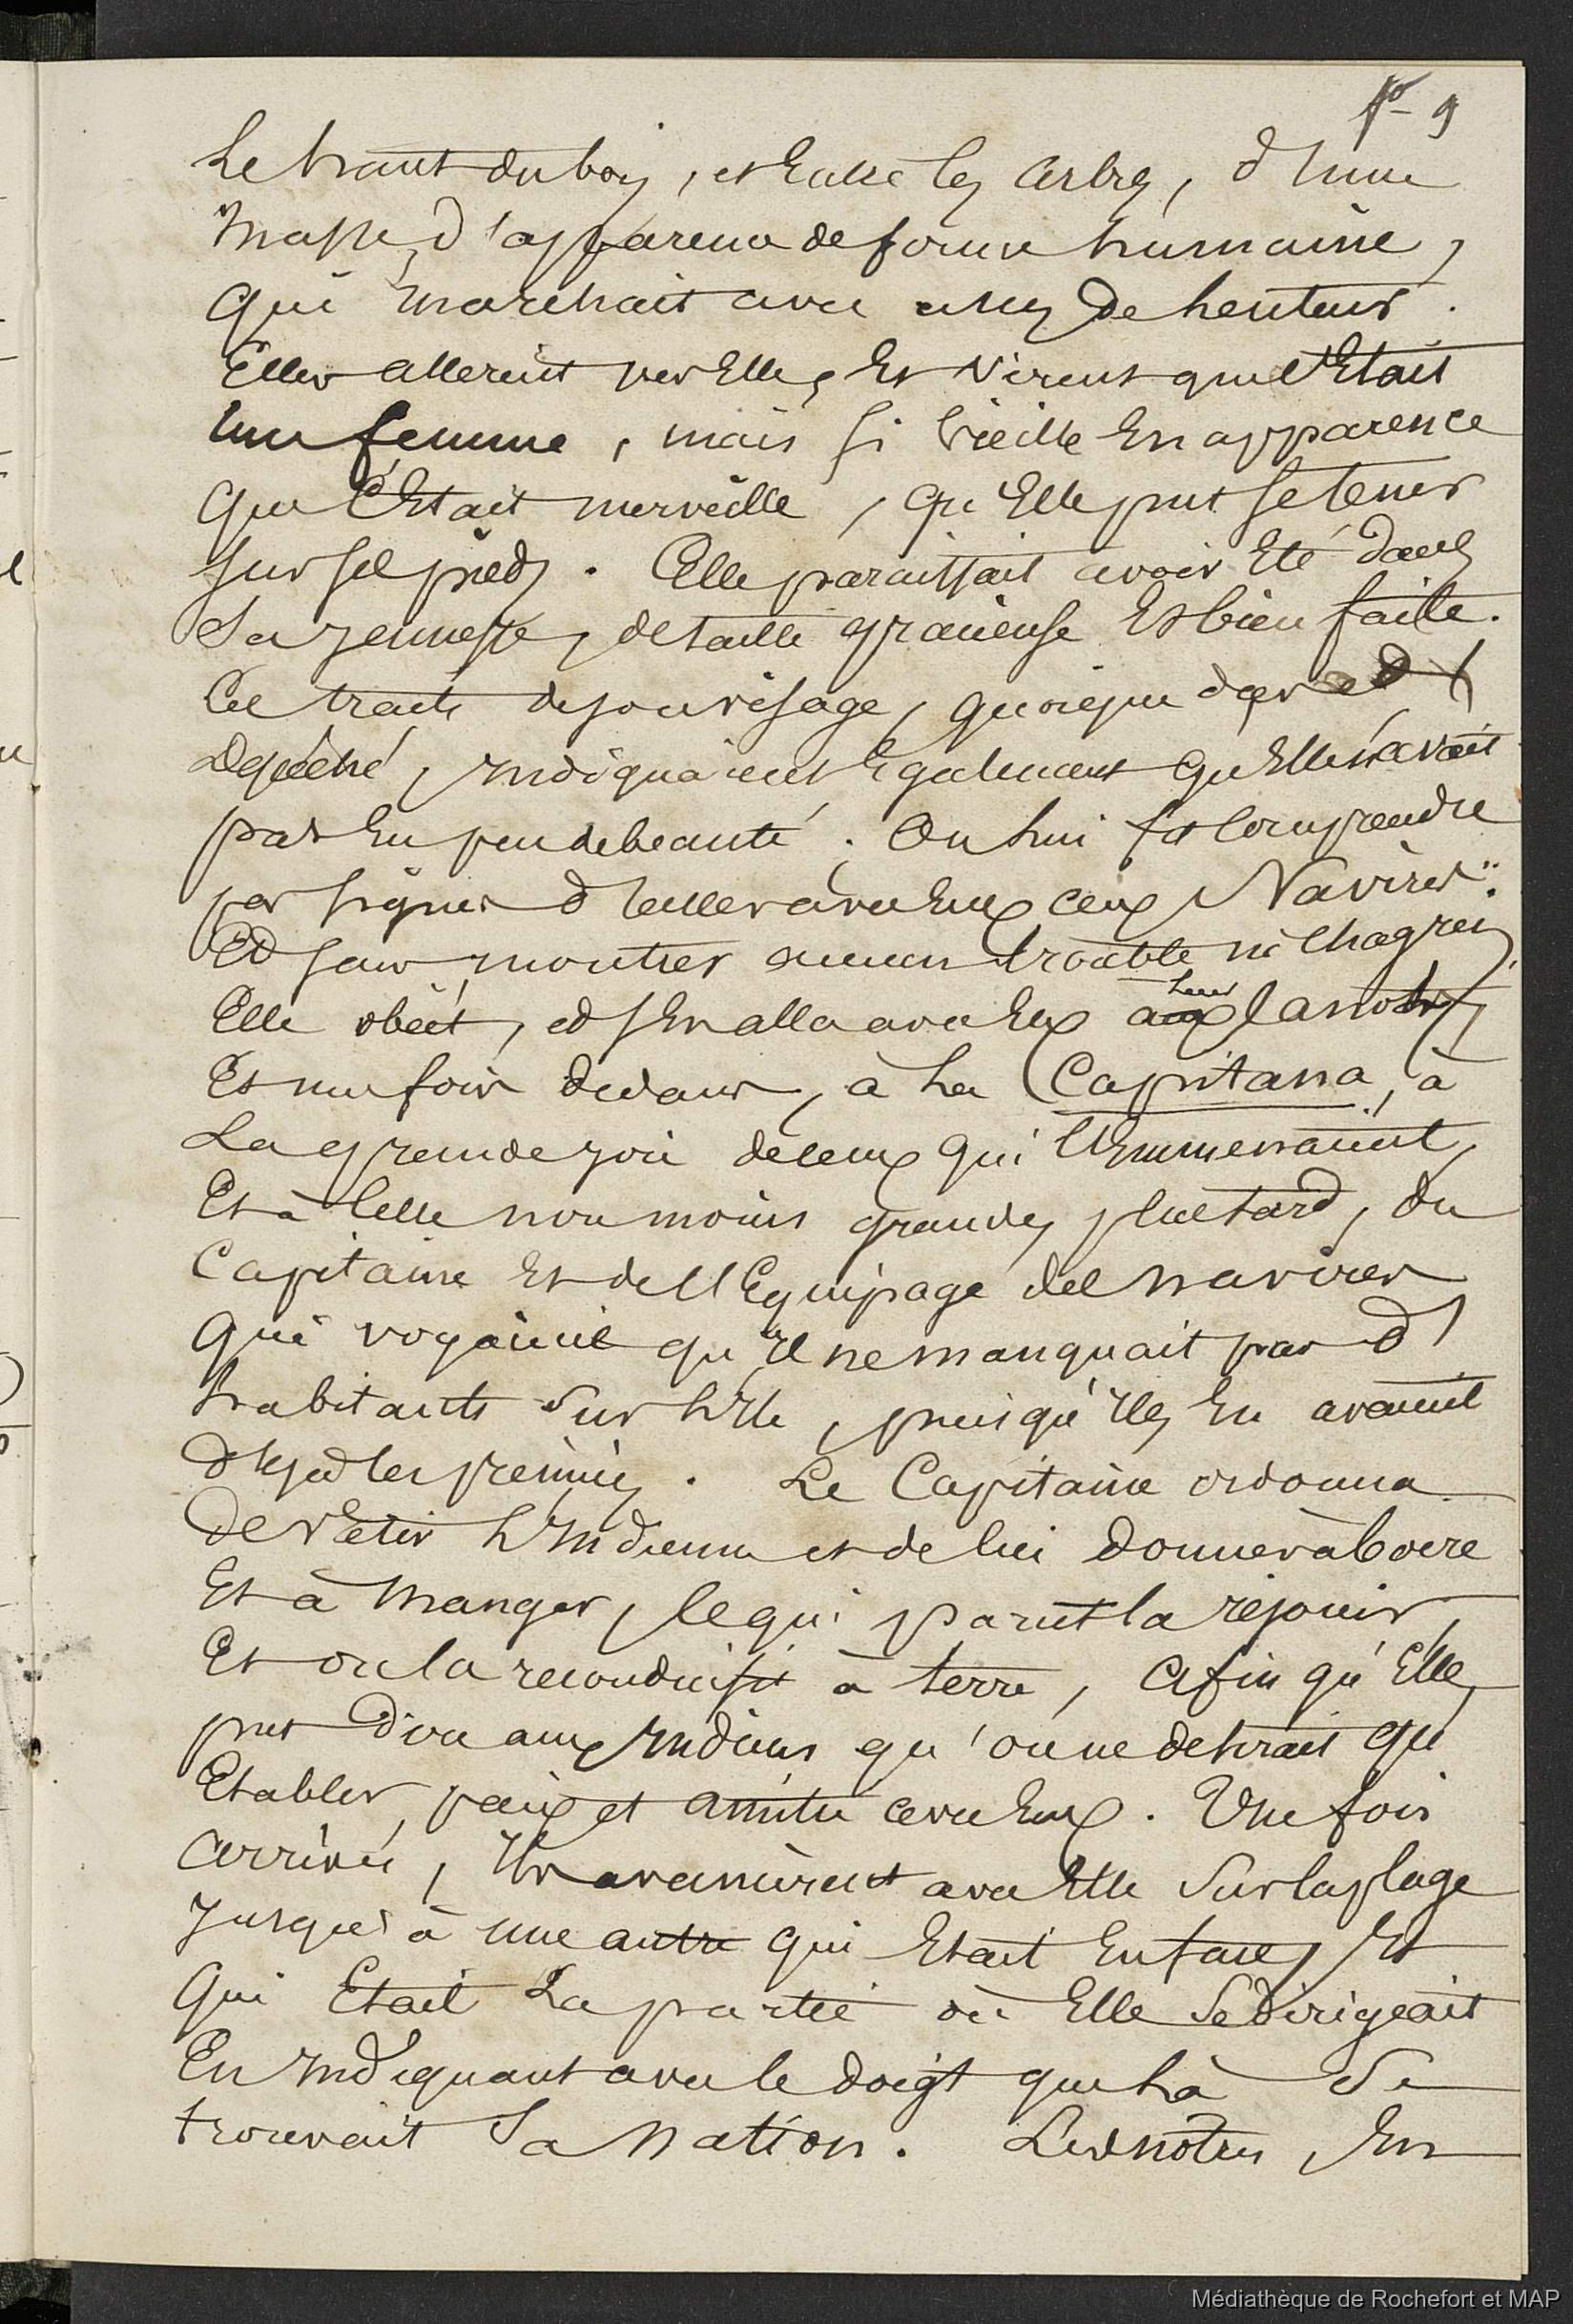 fo 9
Le haut du bois, et entre les arbres, d'une
masse, d'apparence de forme humaine,
qui marchait avec assez de lenteur.
Elles allerent vers Elle, Et virent que c'Etait
une femme, mais si vieille En apparence
que c'Etait merveille, qu'Elle put se tenir
sur ses pieds. Elle paraissait avoir Eté dans
sa jeunesse, de taille gracieuse Et bien faite.
Les traits de son visage, quoique
, Indiquaient Egalement qu'Elle n'avait
pas Eu peu de beauté. On lui fit comprendre
par signes d'aller avec Eux aux Navires.
Et sans montrer aucun trouble ni chagrin,
Elle obéit, et s'En alla avec Eux aux leur canots,
Et une fois dedans, à la Capitana, à
La grande joie de ceux qui l'Emmenaient,
Et à celle non moins grande, plus tard, du
Capitaine Et de l'Equipage des navires
qui voyaient qu'Il ne manquait pas d'
habitants sur l'Ile, puisqu'Ils En avaient
déjà les prémices. Le Capitaine ordonna
de vêtir l'Indienne et de lui donner à boire
Et à manger, ce qui parut la réjouir,
Et on la reconduisit à terre, afin qu'Elle
put dire aux Indiens qu'on ne desirait que
Etablir paix et amitié avec Eux. Une fois
arrivés, Ils avancèrent avec Elle sur la plage
Jusqu'à une autre qui Etait En face, Et
qui Etait La partie où Elle se dirigeait
En Indiquant avec le doigt que là se
trouvait sa nation. Les notres, En
Médiathèque de Rochefort et MAP